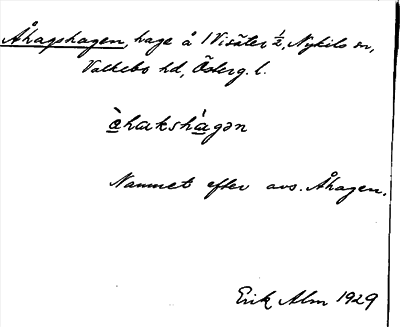 Åhagshagen, hage å 1 Visäter ½, Nykils sn,
Valkebo hd, Österg. l.
Namnet efter avs. Åhagen.
Erik Alm 1929